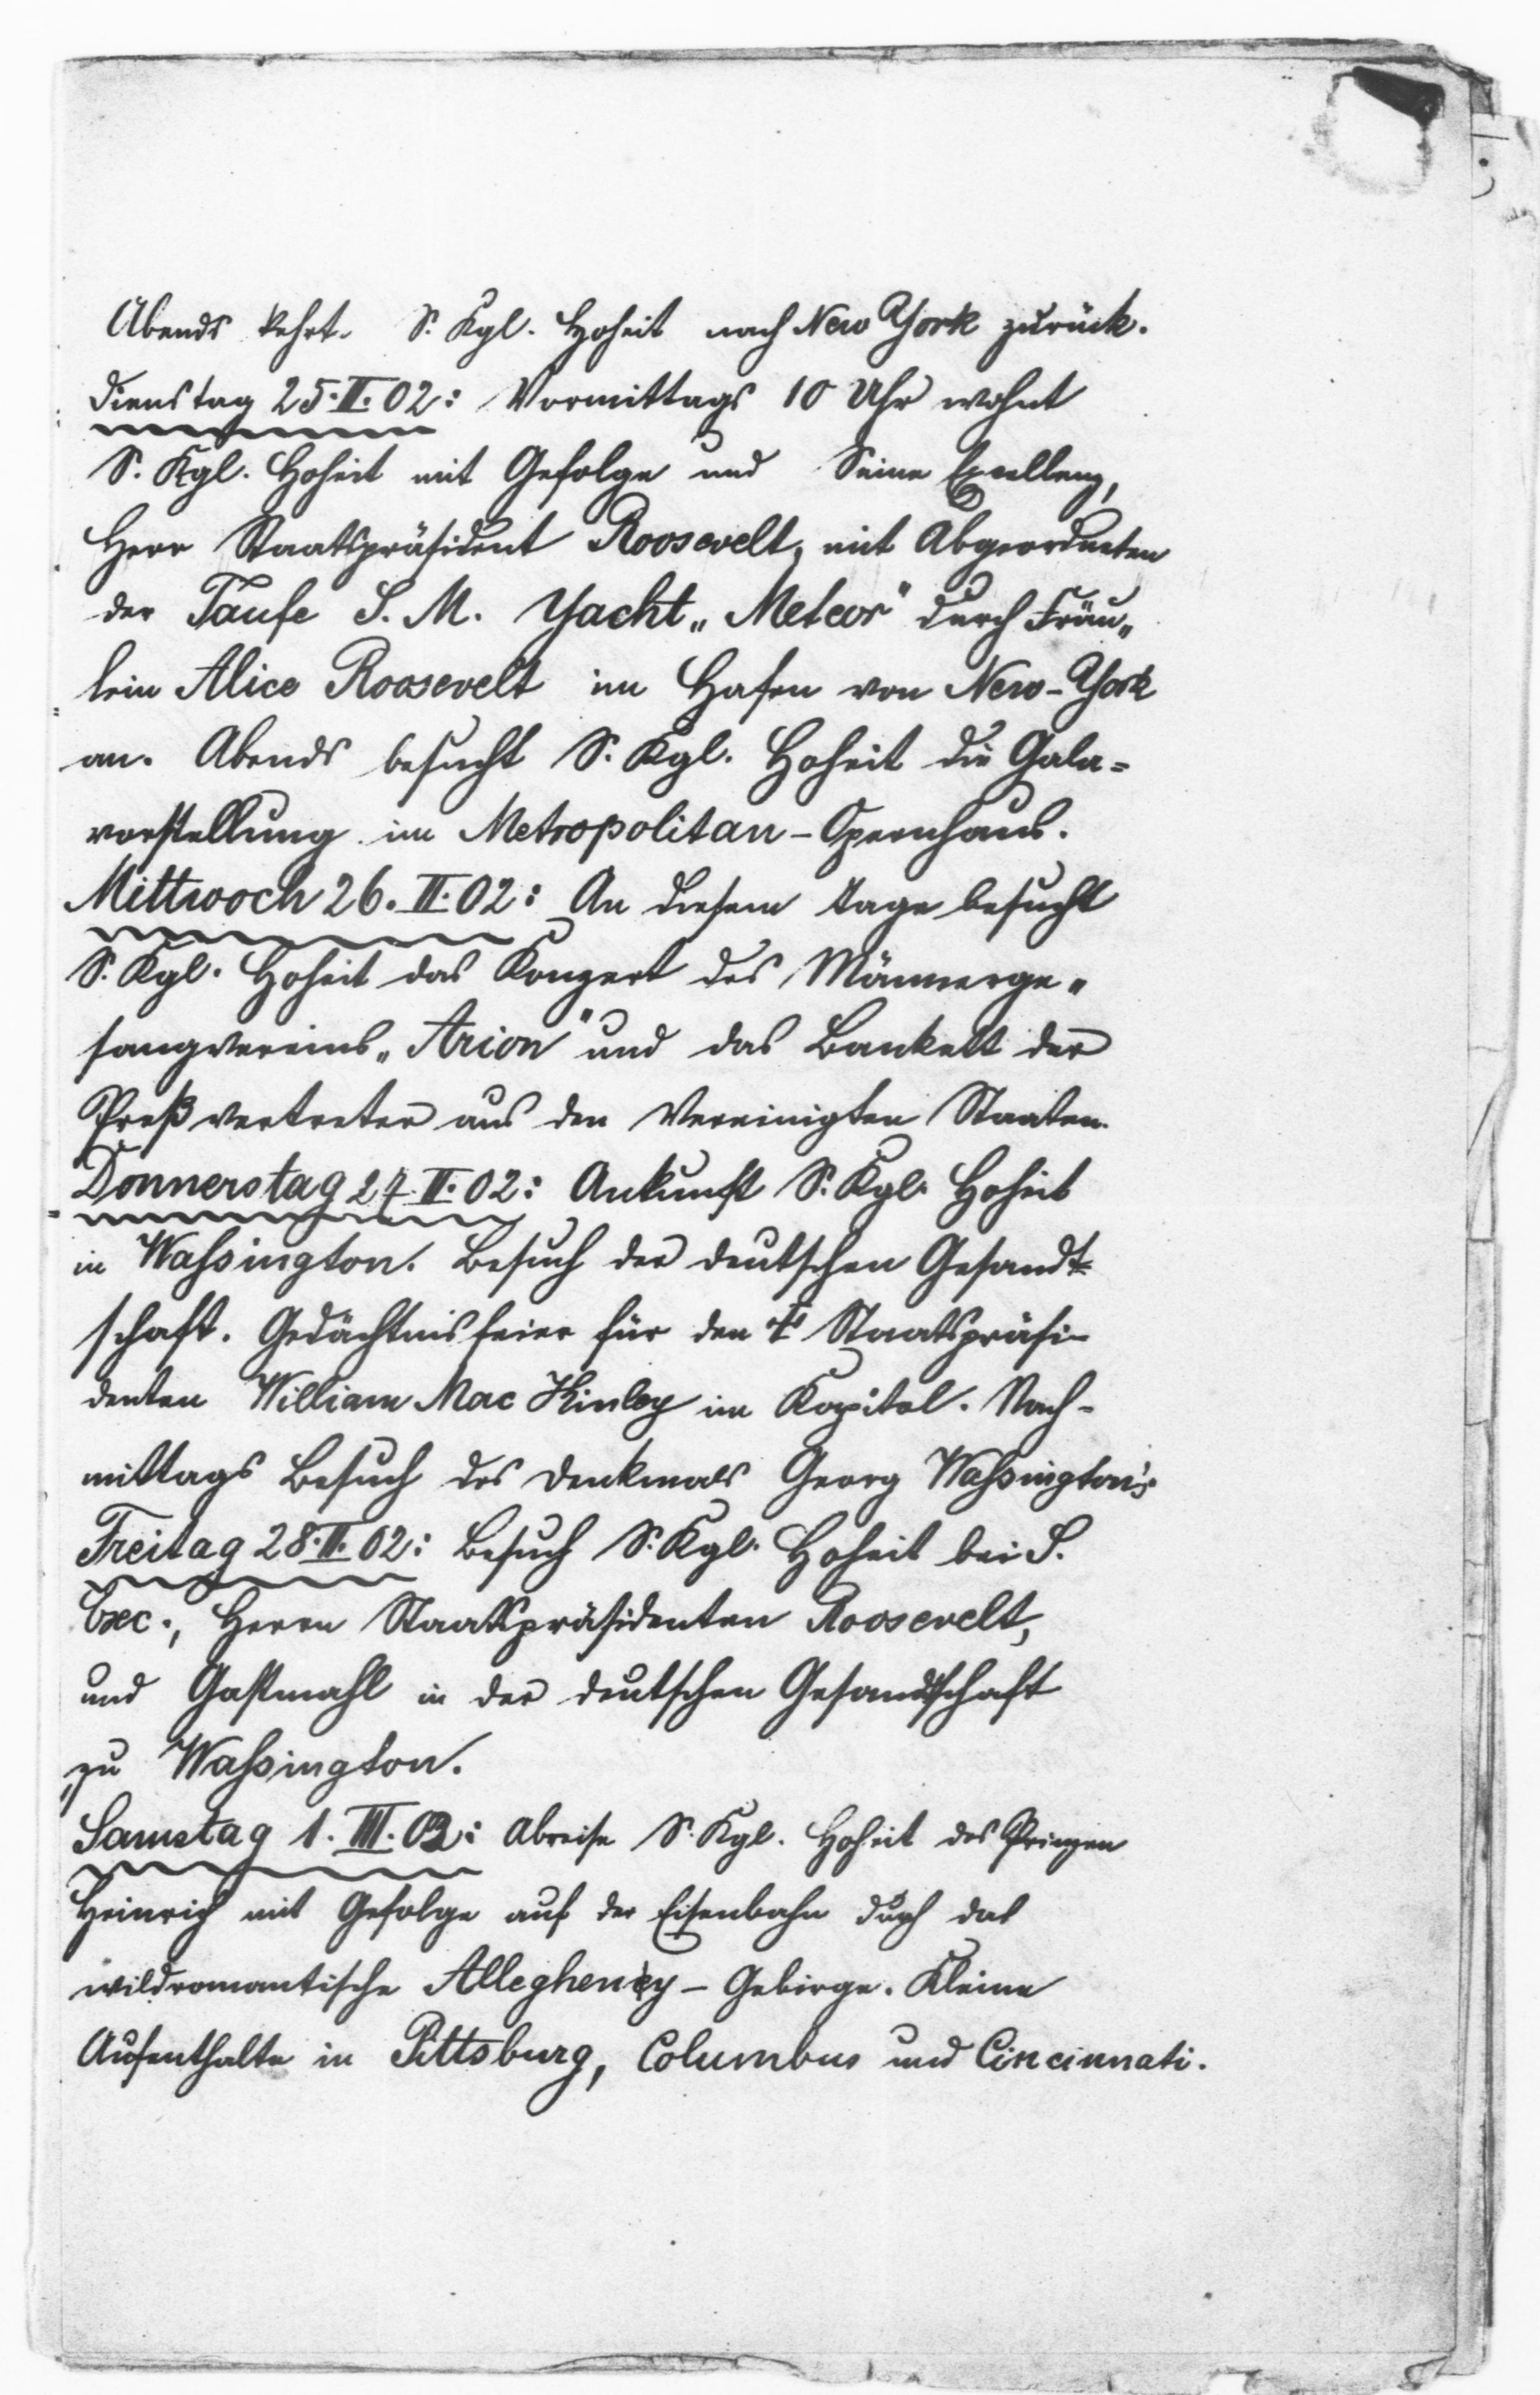 Abends kehrt S. Kgl. Hoheit nach New York zurück.
Dienstag 25.II.02: Vormittags 10 Uhr wohnt
S. Kgl. Hoheit mit Gefolge und Seine Excellenz,
Herr Staatspräsident Roosevelt, mit Abgeordneten
der Taufe S. M. Yacht „Meteor" durch Fräu„
lein Alice Roosevelt im Hafen von New-York
an. Abends besucht S. Kgl. Hoheit die Gala=
vorstellung im Metropolitan-Opernhaus.
Mittwoch 26.II.02: An diesem Tage besucht
S. Kgl. Hoheit das Konzert des Männerge„
sangvereins „Arion" und das Bankett der
Preßvertreter aus den Vereinigten Staaten.
Donnerstag 27.II.02: Ankunft S. Kgl. Hoheit
in Washington. Besuch der deutschen Gesandt=
schaft. Gedächtnisfeier für den † Staatspräsi-
denten William Mac Kinley im Kapitol. Nach-
mittags Besuch des Denkmals Georg Washington's.
Freitag 28.II.02: Besuch S. Kgl. Hoheit bei S.
Exc., Herrn Staatspräsidenten Roosevelt,
und Gastmahl in der deutschen Gesandtschaft
zu Washington.
Samstag 1.III.02: Abreise S. Kgl. Hoheit des Prinzen
Heinrich mit Gefolge auf der Eisenbahn durch das
wildromantische Alleghency-Gebirge. Kleine
Aufenthalte in Pittsburg, Columbus und Cincinnati.